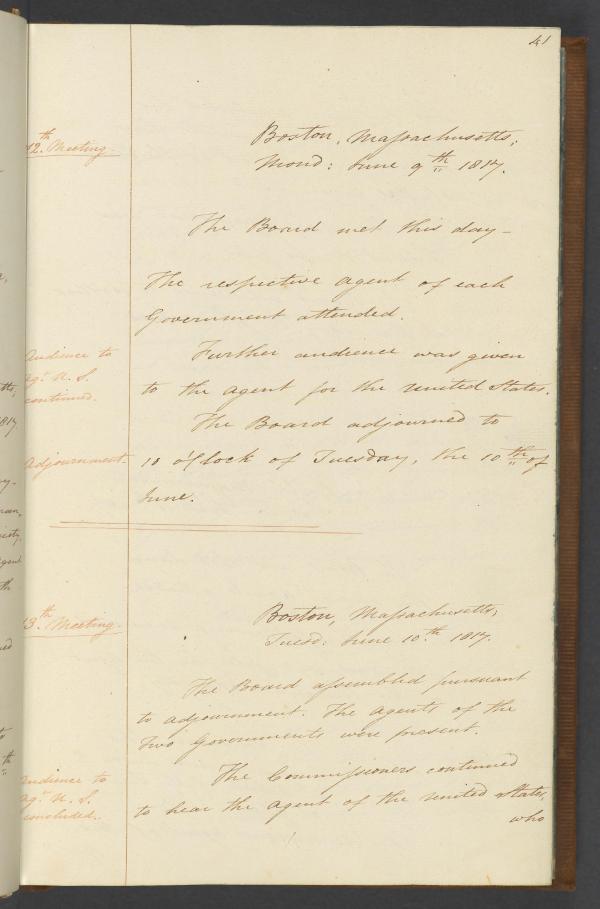 41
12th. Meeting.
Boston, Massachusetts,
Mond: June 9th 1817.
The Board met this day—
The respective agent of each
Government attended.
Audience to
agt. U. S.
continued.
Further audience was given
to the agent for the United States.
The Board adjourned to
Adjournment.
10 o'Clock of Tuesday, the 10th of
June.
13th. Meeting.
Boston, Massachusetts,
Tuesd: June 10th. 1817.
The Board assembled pursuant
to adjournment. The agents of the
two Governments were present.
Audience to
agt. U. S.
concluded.
The Commissioners continued
to hear the agent of the United States,
who